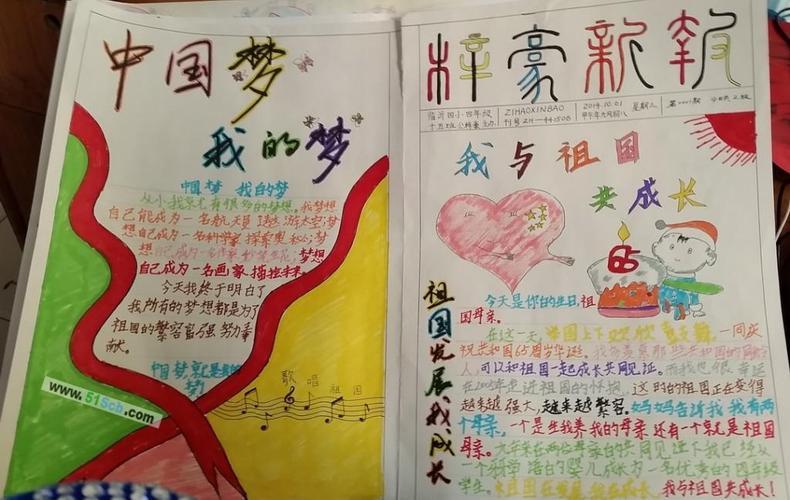 中国梦
我的梦
中国梦 我的梦
从小我就有很多的梦想。我梦想
自己能成为一名航天员 遨游太空;梦
想自己成为一名科学家 探索奥秘;梦
想自己成为一名作家 妙笔生花;梦想
自己成为一名画家 描绘未来。
今天我终于明白了
我所有的梦想都是为了
祖国的繁容富强 努力奉
献。
中国梦就是我的
梦!
歌唱祖国
www.51Scb.com
梓豪新報
临沂四小·四年级
ZIHAOXINBAO
2014.10.01
星期三
我与祖国
共成长
65
祖国发展我成长
今天是你的生日,祖
国母亲。
在这一天 举国上下欢欣 一同庆
祝共和国65周岁华诞。
人,可以和祖国一起成长共同见证。而我也很幸运
在2005年走进祖国的怀抱,这时的祖国正在变得
越来越强大,越来越繁容。妈妈告诉我 我有两
个母亲,一个是生我养我的母亲 还有一个就是祖国
母亲。九年来在两位母亲的共同见证下我已经从
一个的婴儿成长为一名优秀的四年级
学生。 我与祖国共成长!